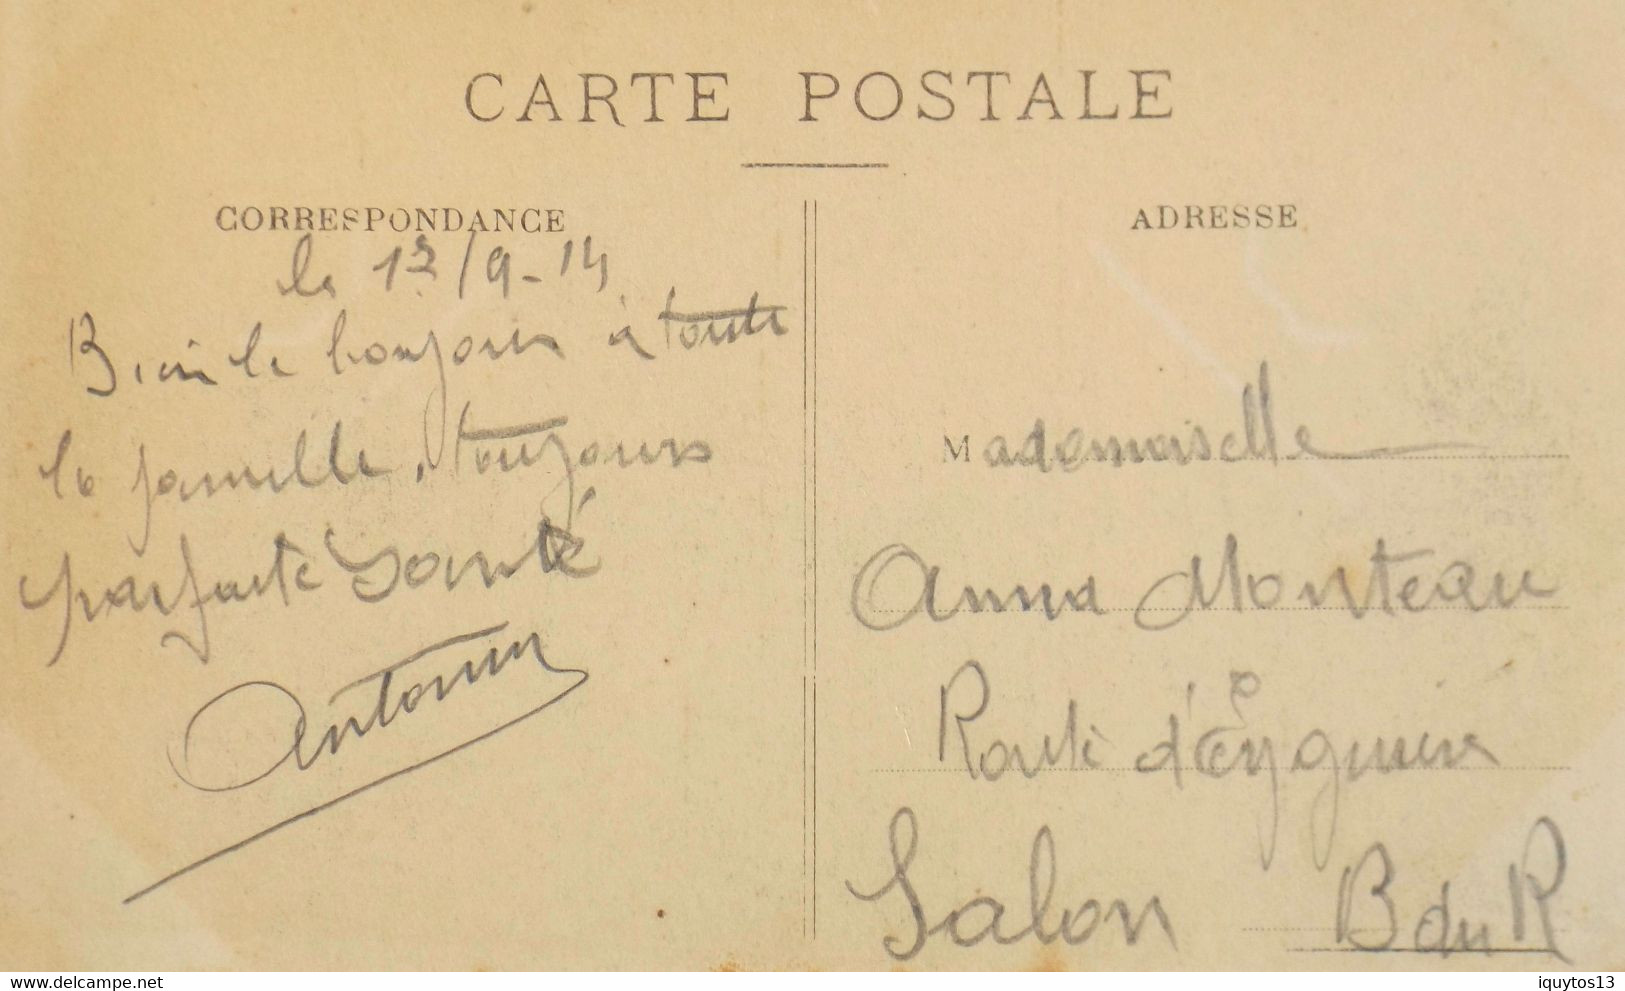 CARTE POSTALE
CORRESPONDANCE
le 12/9-14
Bien le bonjour à toute
la famille, toujours
parfaite santé
Antonin
ADRESSE
Mademoiselle
Anna Monteau
Route d'Eyguières
Salon B du R
www.delcampe.net
iquytos13